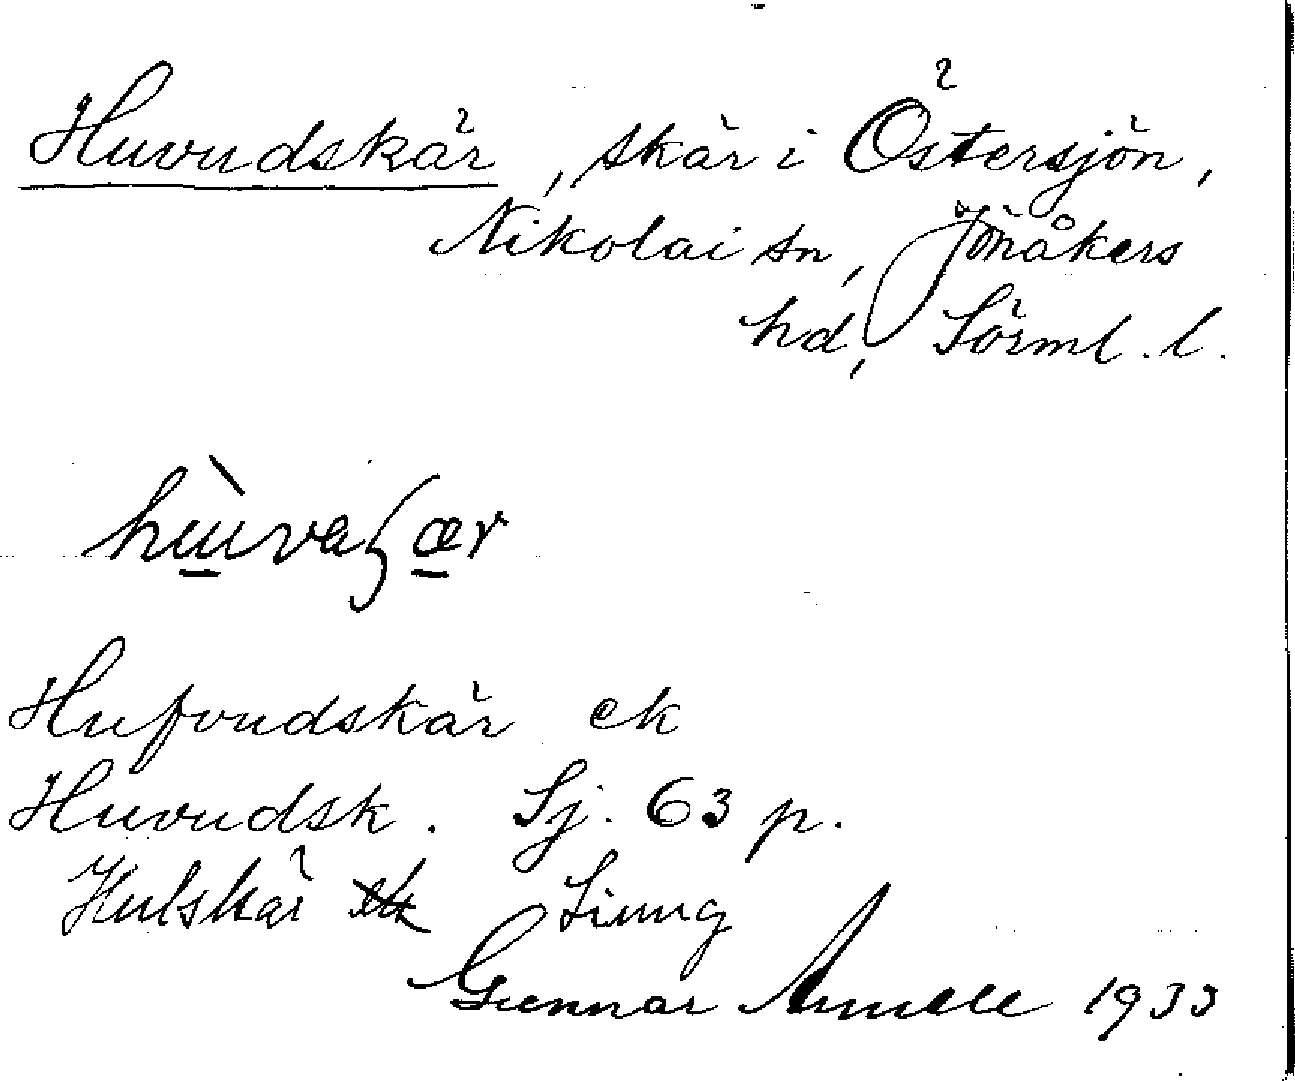 Huvudskär, skär i Östersjön,
Nikolai sn, Jönåkers
hd, Sörml. l.
Hufvudskär ek
Huvudsk. Sj. 63 p.
Hulskär Liung
Gunnar Annell 1933